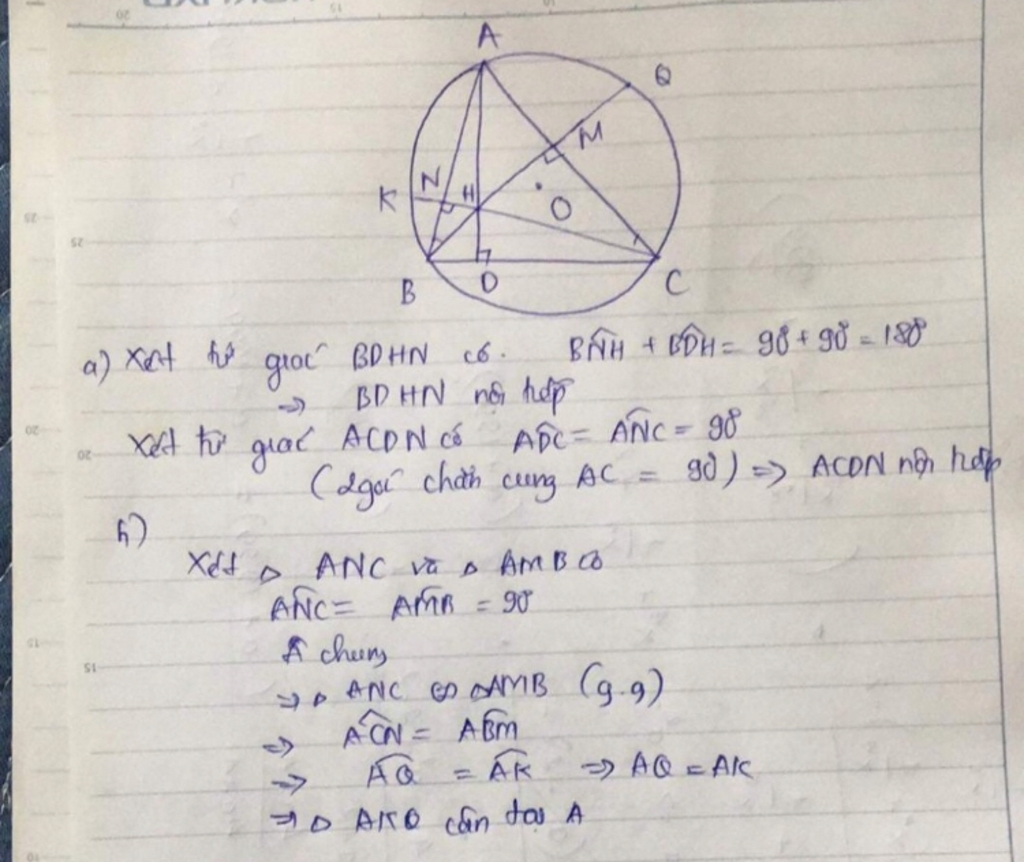 A
Q
M
K
N
H
O
B
D
C
a) Xét tứ giác BDHN có. BN̂H + BD̂H = 90° + 90° = 180°
⇒ BDHN nội tiếp
Xét tứ giác ACDN có AD̂C = AN̂C = 90°
(2 góc chắn cung AC = 90°) ⇒ ACDN nội tiếp
b)
Xét △ ANC và △ AMB có
AN̂C = AM̂B = 90°
Â chung
⇒ △ ANC ∽ △AMB (g.g)
⇒ AĈN = AB̂M
⇒ A͡Q = A͡K ⇒ AQ = AK
⇒ △ AKQ cân tại A
25
20
15